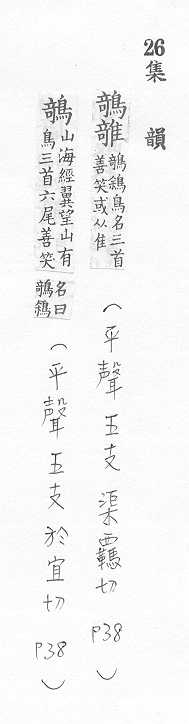 26
集韻
鵸
鵸鵌鳥名三首
善笑或从隹
（平聲 五支 渠覊切 P38）
鵸
山海經翼望山有
鳥三首六尾善笑
名曰
鵸鵌
（平聲 五支 於宜切 P38）